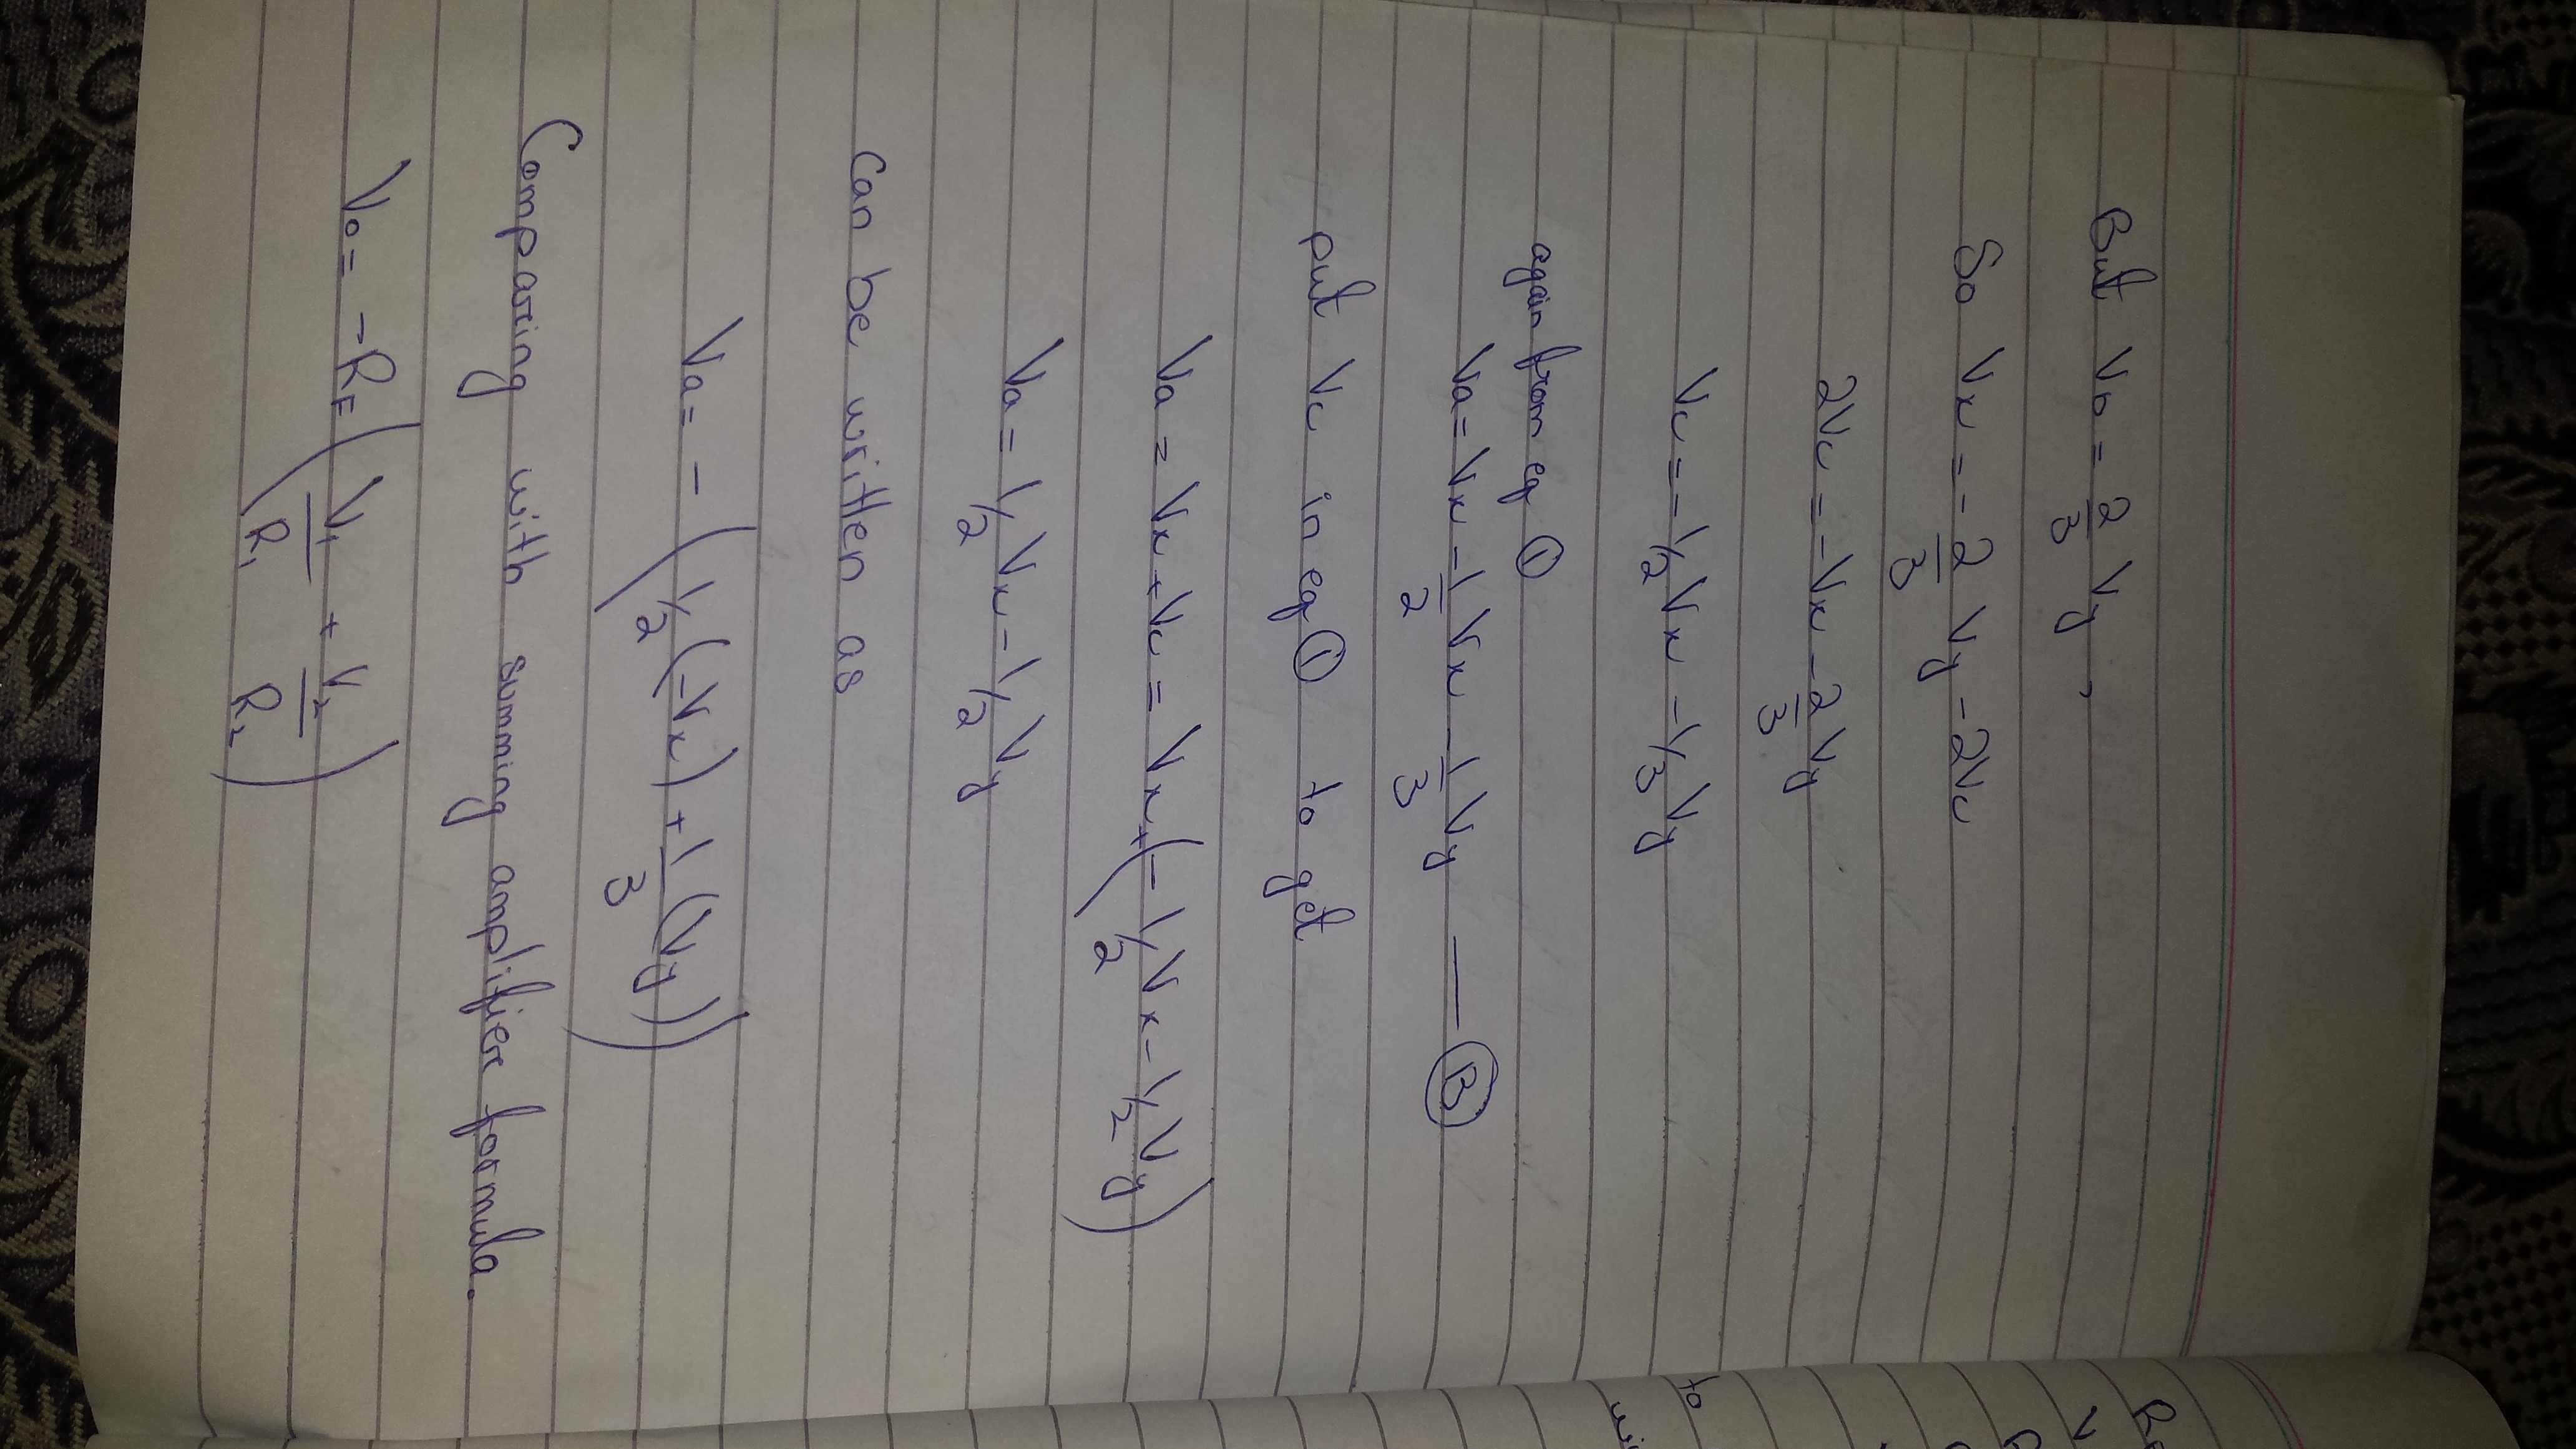 But Vb = 2/3 Vy,
So Vx = -2/3 Vy - 2Vc
2Vc = -Vx - 2/3 Vy
Vc = -1/2 Vx - 1/3 Vy
again from eq ①
Va = Vx - 1/2 Vx - 1/3 Vy — Ⓑ
put Vc in eq ① to get
Va = Vx + Vc = Vx + (-1/2 Vx - 1/2 Vy)
Va = 1/2 Vx - 1/2 Vy
Can be written as
Va = - (1/2 (-Vx) + 1/3 (Vy))
Comparing with summing amplifier formula.
Vo = -RF (V1/R1 + V2/R2)
to